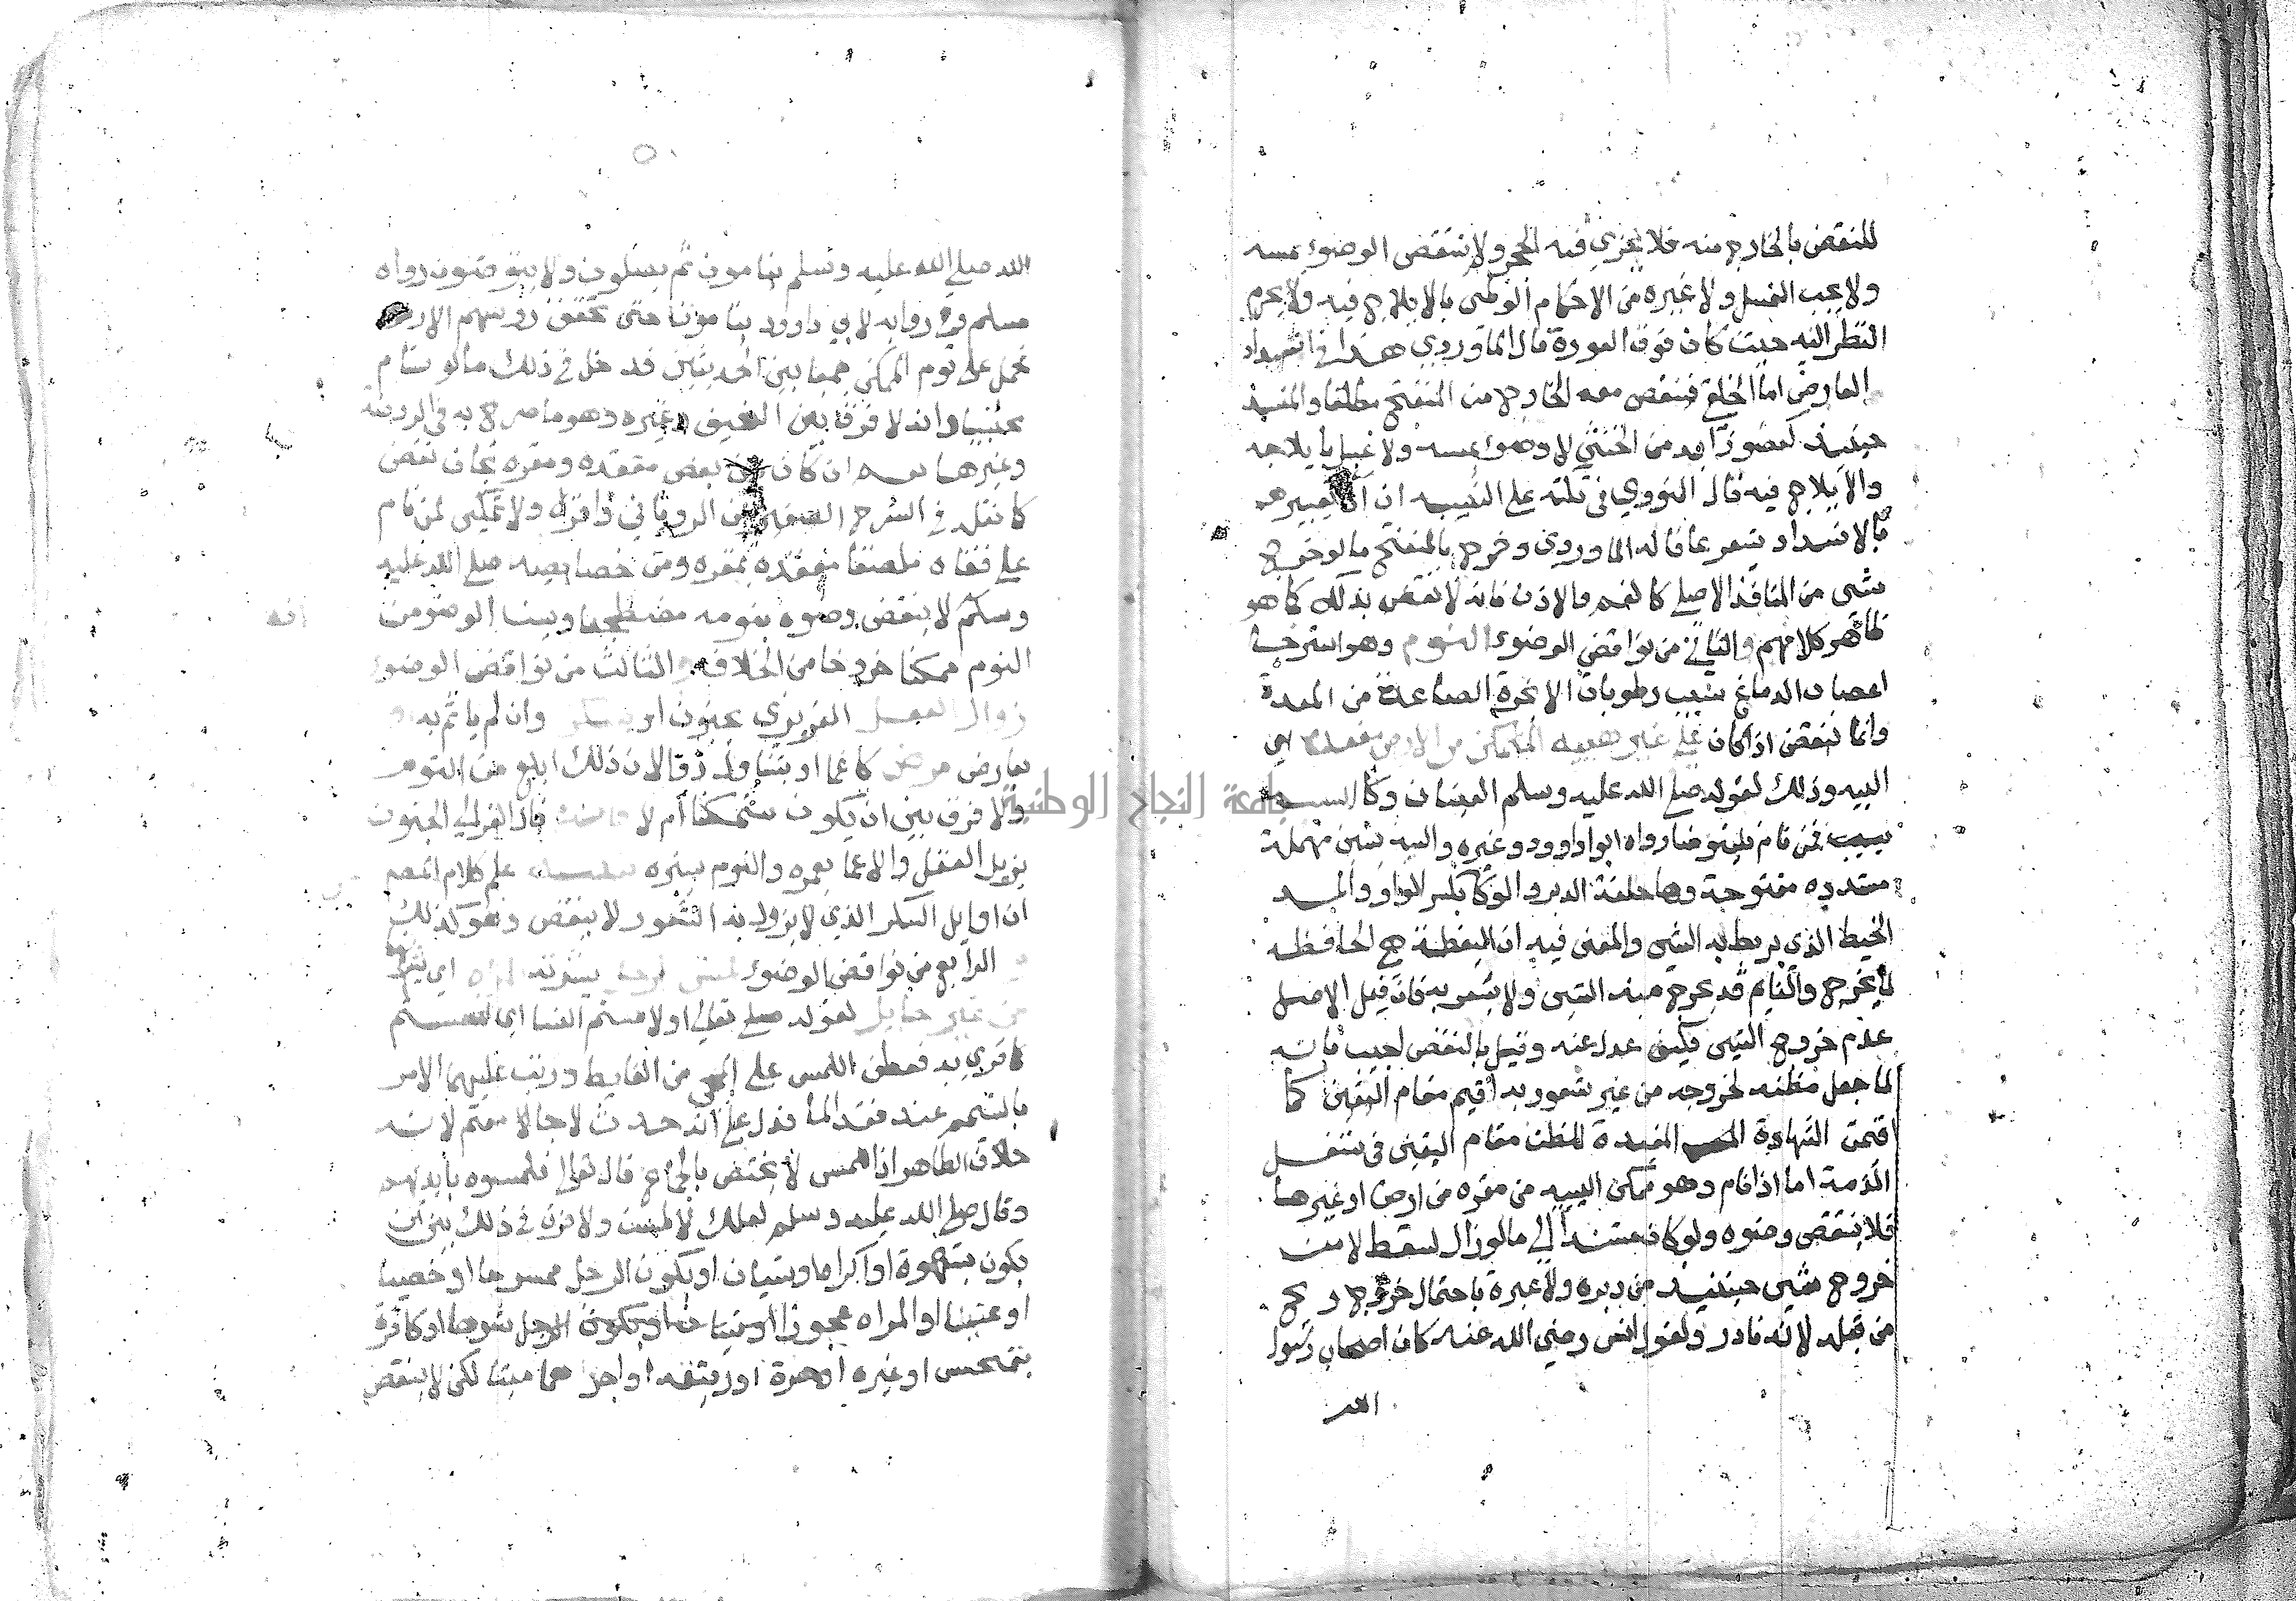 للنقض بالخارج منه فلا يجزي فيه الحجر ولا ينتقض الوضوء بمسه
ولا يجب الغسل ولا غيره من الاحكام الوطى بالايلاج فيه ولا يحرم
النظر اليه حيث كان فوق العورة قال الماوردي هذا في انسداد
العارض اما الخلقي فينقض معه الخارج من المنفتح مطلقا والمنسد
حينيذ كعضو زايد من الخنثى لا وضوء بمسه ولا غسل بايلاجه
والايلاج فيه قال النووي في نكته على التنبيه ان تعبيرهم
بالانسداد يشعر بما قاله الماوردي وخرج بالمنفتح ما لو خرج
شي من المنافذ الاصلي كالفم والاذن فانه لا نقض بذلك كما هو
ظاهر كلامهم والثاني من نواقض الوضوء النوم وهو استرخا
اعصاب الدماغ بسبب رطوبات الابخرة الصاعدة من المعدة
وانما ينقض اذا كان على غير هيية المتمكن من الارض مقعده اي
اليية وذلك لقوله صلى الله عليه وسلم العينان وكا السه
فمن نام فليتوضا رواه ابوا داوود وغيره والسه بسين مهملة
مشدده مفتوحة وها حلقة الدبر والوكا بكسر الواو والمد
الخيط الذي يربط به الشي والمعنى فيه ان اليقظة هي الحافظة
لما يخرج والنايم قد يخرج منه الشي ولا يشعر به فان قيل الاصل
عدم خروج الشي فكيف عدل عنه وقيل بالنقض اجيب بانه
لما جعل مظنه لخروجه من غير شعور به اقيم مقام اليقين كما
اقيمت الشهادة المفيدة للظن مقام اليقين في شغل
الذمة اما اذا نام وهو ممكن الييه من مقره من ارض او غيرها
فلا ينتقض وضوه ولو كان مستندا الى ما لو زال لسقط لامن
خروج شي حينيذ من دبره ولا عبرة باحتمال خروج ريح
من قبله لانه نادر ولقول انس رضي الله عنه كان اصحاب رسول
الله
٥٠
الله صلى الله عليه وسلم ينامون ثم يصلون ولا يتوضون رواه
مسلم وفي رواية لابي داوود ينامون حتى تخفق روسهم الارض
فحمل على نوم الممكن جمعا بين الحديثين فدخل في ذلك ما لو نام
محتبيا وانه لا فرق بين النحيف وغيره وهو ما صرح به في الروضة
وغيرها نعم ان كان بين بعض مقعده ومقره تجاف نقض
كما نقله في الشرح الصغير عن الروياني واقره ولا تمكين لمن نام
على قفاه ملصقا مقعده بمقره ومن خصايصه صلى الله عليه
وسلم لا ينقض وضوه بنومه مضطجعا ويسن الوضو من
النوم ممكنا خروجا من الخلاف والثالث من نواقض الوضوء
زوال العقل الغريزي بجنون او بسكر وان لم ياثم به او
بعارض مرض كاغما او بتناول دوا لان ذلك ابلغ من النوم
ولا فرق بين ان يكون متمكنا ام لا قال الغزالي الجنون
يزيل العقل والاغما يغمره والنوم يستره علم كلام المصنف
ان اوايل السكر الذي لا يزول به الشعور لا ينقض وهو كذلك
الرابع من نواقض الوضوء لمس الرجل بشرته المراه اي بشرتها
من غير حايل لقوله تعالى او لامستم النسا اي لمستم
كما قري به فعطف اللمس على المجي من الغايط ورتب عليهما الامر
بالتيمم عند فقد الما فدل على انه حدث لا جامعتم لانه
خلاف الظاهر اذ اللمس لا يختص بالجماع قال تعالى فلمسوه بايديهم
وقال صلى الله عليه وسلم لعلك لامست ولا فرق في ذلك بين ان
يكون بشهوة او اكراه او نسيان او يكون الرجل ممسوحا او خصيا
او عنينا او المراه عجوزا شوها او كافرة
بتمجس او غيره او حرة او رقيقه او احدهما ميتا لكن لا ينقض
جامعة النجاح الوطنية